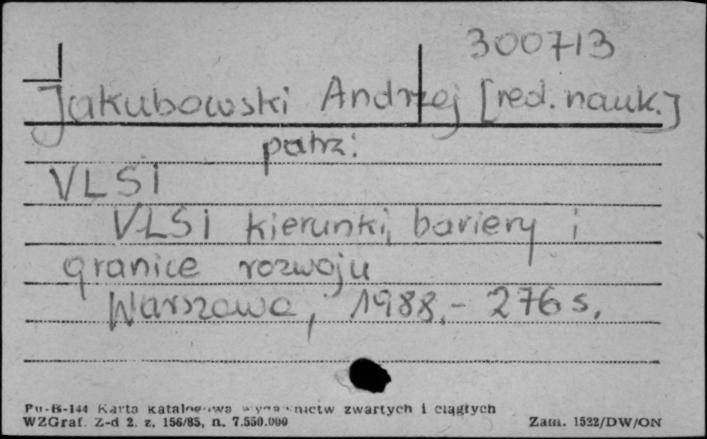 300713
Jakubowski Andrzej [red. nauk.]
patrz:
VLSI
VLSI kierunki, bariery i
granice rozwoju
Warszawa, 1988.- 276 s.
Pu-B-144 Karta katalogowa wydawnictw zwartych i ciągłych
WZGraf. Z-d 2. z. 156/85, n. 7.550.000
Zam. 1522/DW/ON